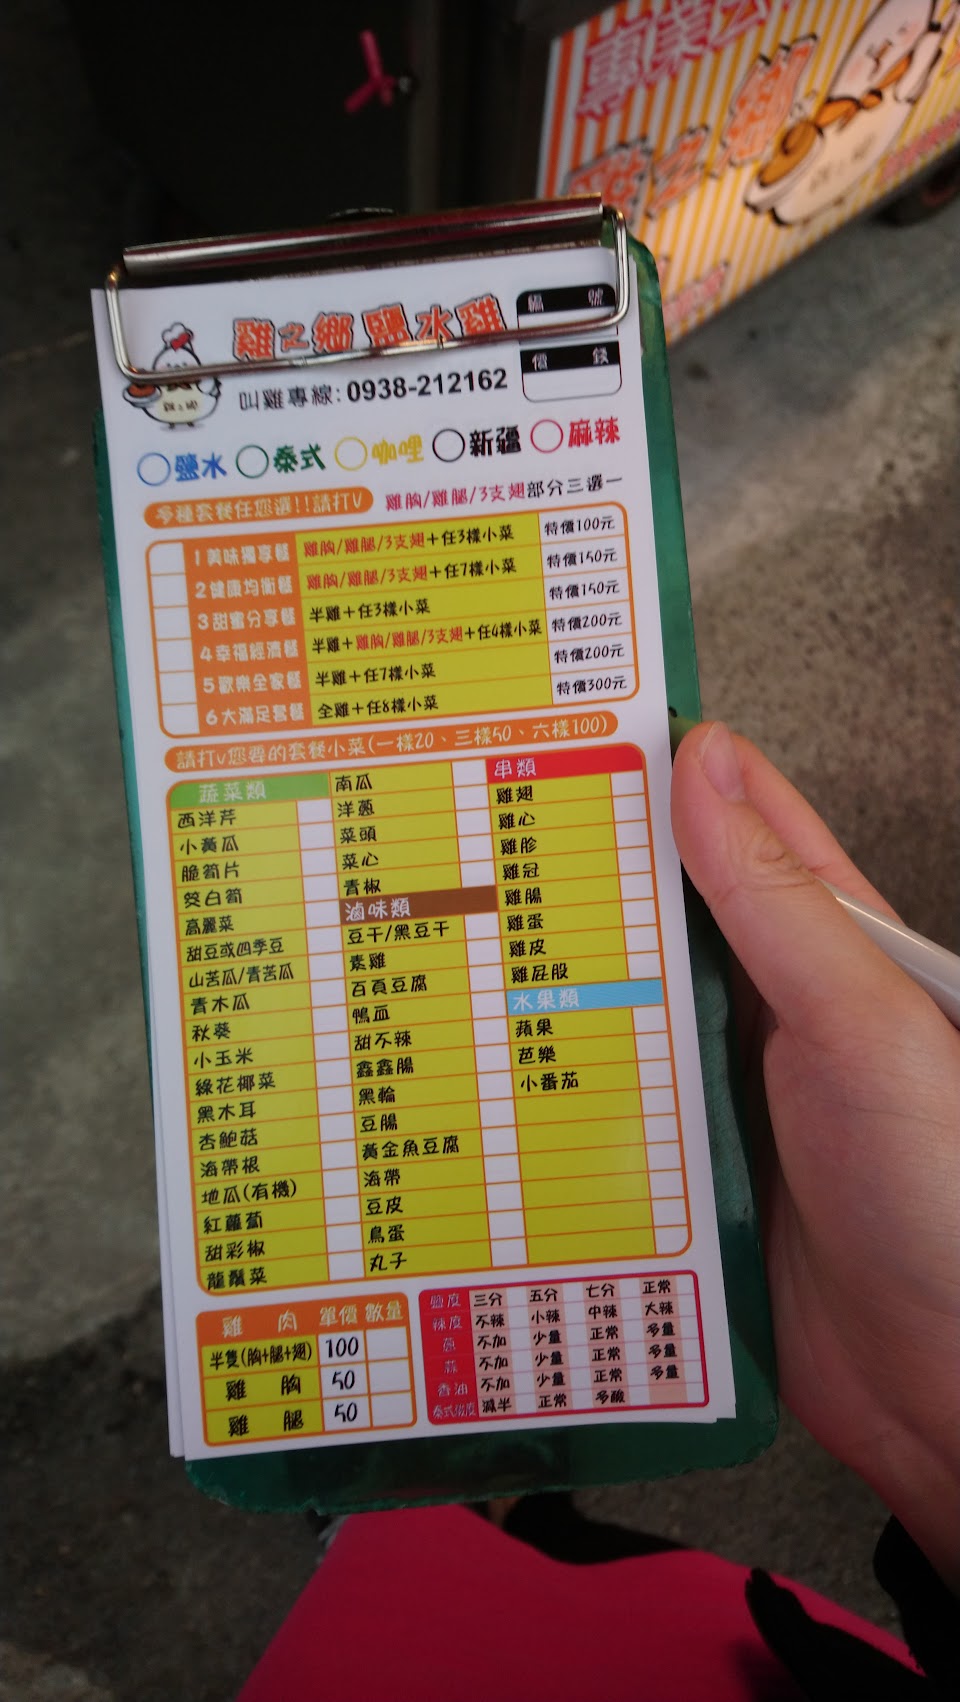 專業
雞之鄉
雞之鄉 鹽水雞
編 號
價 錢
叫雞專線: 0938-212162
鹽水 泰式 咖哩 新疆 麻辣
多種套餐任您選!!請打V 雞胸/雞腿/3支翅部分三選一
1 美味獨享餐 雞胸/雞腿/3支翅+任3樣小菜 特價100元
2 健康均衡餐 雞胸/雞腿/3支翅+任7樣小菜 特價150元
3 甜蜜分享餐 半雞+任3樣小菜 特價150元
4 幸福經濟餐 半雞+雞胸/雞腿/3支翅+任4樣小菜 特價200元
5 歡樂全家餐 半雞+任7樣小菜 特價200元
6 大滿足套餐 全雞+任8樣小菜 特價300元
請打v您要的套餐小菜(一樣20、三樣50、六樣100)
蔬菜類
西洋芹
小黃瓜
脆筍片
筊白筍
高麗菜
甜豆或四季豆
山苦瓜/青苦瓜
青木瓜
秋葵
小玉米
綠花椰菜
黑木耳
杏鮑菇
海帶根
地瓜(有機)
紅蘿蔔
甜彩椒
龍鬚菜
南瓜
洋蔥
菜頭
菜心
青椒
滷味類
豆干/黑豆干
素雞
百頁豆腐
鴨血
甜不辣
鑫鑫腸
黑輪
豆腸
黃金魚豆腐
海帶
豆皮
鳥蛋
丸子
串類
雞翅
雞心
雞胗
雞冠
雞腸
雞蛋
雞皮
雞屁股
水果類
蘋果
芭樂
小番茄
雞 肉 單價 數量
半隻(胸+腿+翅) 100
雞 胸 50
雞 腿 50
鹽度 三分 五分 七分 正常
辣度 不辣 小辣 中辣 大辣
蔥 不加 少量 正常 多量
蒜 不加 少量 正常 多量
香油 不加 少量 正常 多量
泰式酸度 減半 正常 多酸